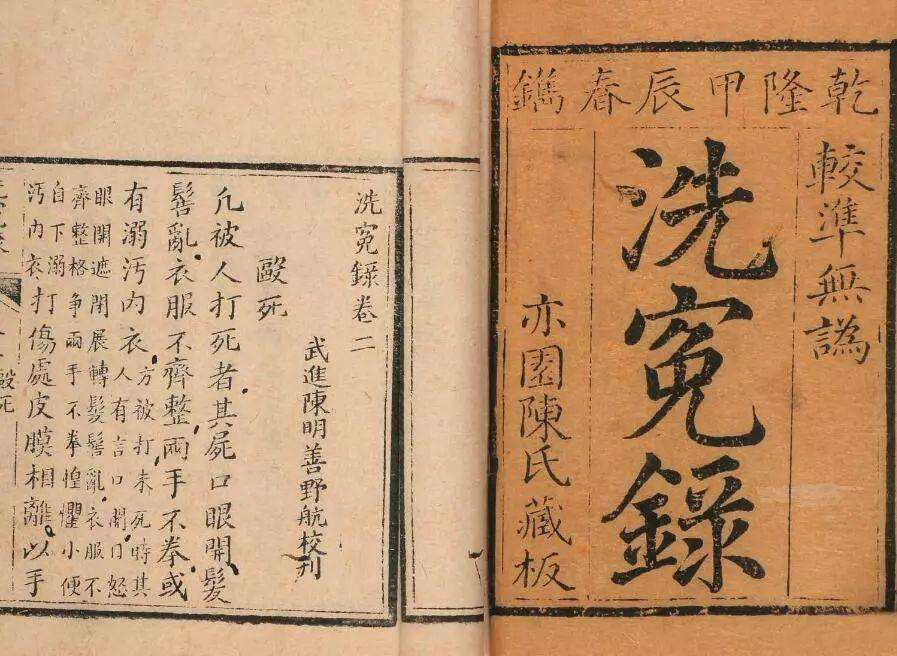 乾隆甲辰春鐫
較準無譌
洗寃錄
亦園陳氏藏板
洗寃錄卷二
武進陳明善野航校刊
毆死
凡被人打死者其屍口眼開髮
髻亂衣服不齊整兩手不拳或
有溺汚內衣
人方被打未死時其
有言口開目怒
眼開遮閉展轉髮髻亂衣服不
齊整格爭兩手不拳惶懼小便
自下溺
汚內衣
打傷處皮膜相離以手
毆死